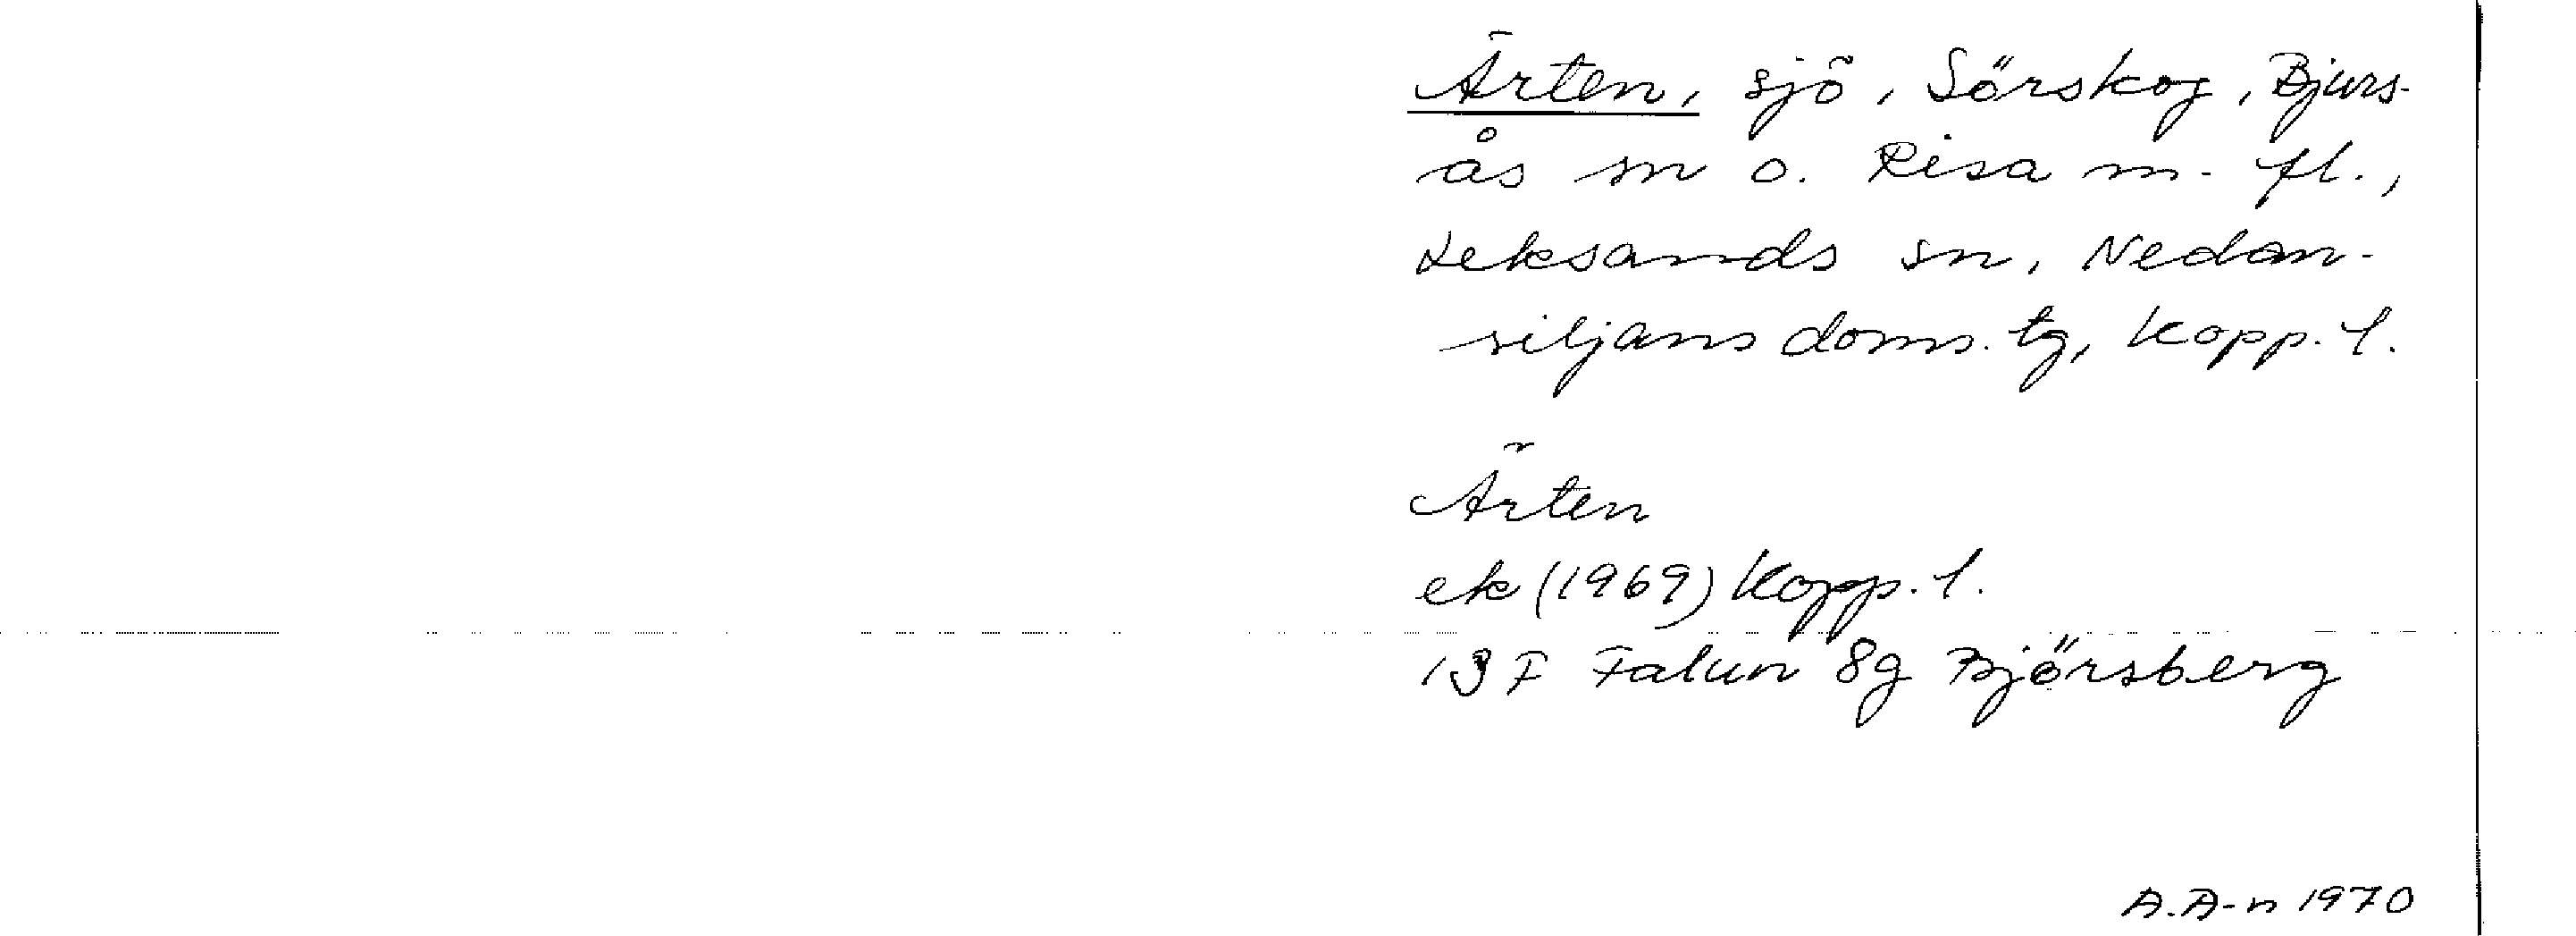 Ärten, sjö, Sörskog, Bjurs-
ås sn o. Risa m. fl.,
Leksands sn, Nedan-
siljans doms. tg, Kopp. l.
Ärten
ek (1969) Kopp. l.
13 F Falun 8g Bjørsberg
A.A-n 1970